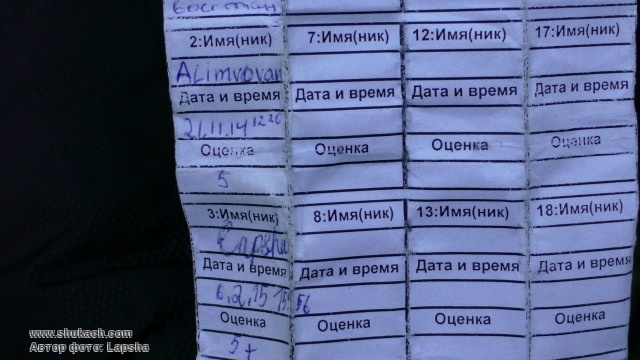 2:Имя(ник) 7:Имя(ник) 12:Имя(ник) 17:Имя(ник)
Alimvovan
Дата и время Дата и время Дата и время Дата и время
21.11.14 12 20
Оценка Оценка Оценка Оценка
5
3:Имя(ник) 8:Имя(ник) 13:Имя(ник) 18:Имя(ник)
Дата и время Дата и время Дата и время Дата и время
6.2.15 15 56
Оценка Оценка Оценка Оценка
5+
www.shukach.com
Автор фото: Lapsha